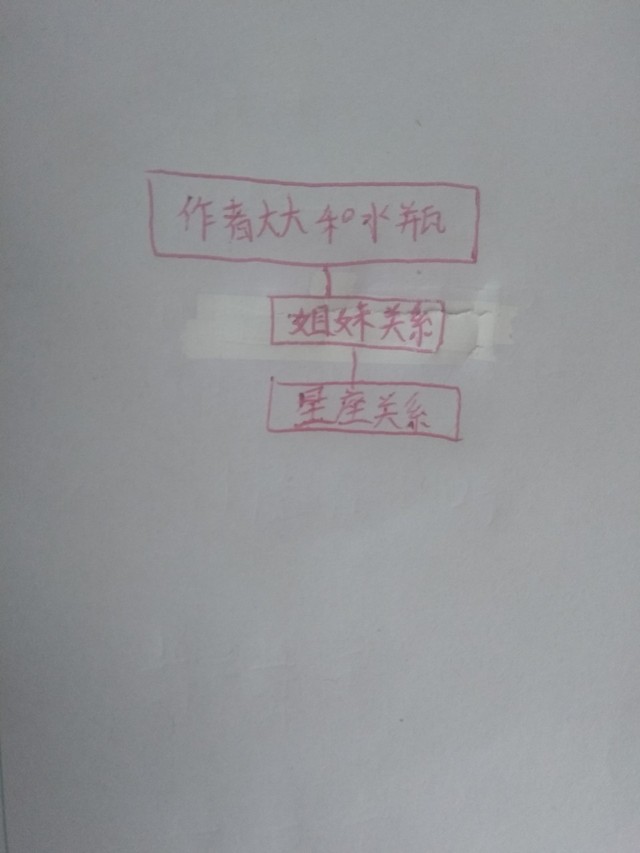 作者大大和水瓶
姐妹关系
星座关系